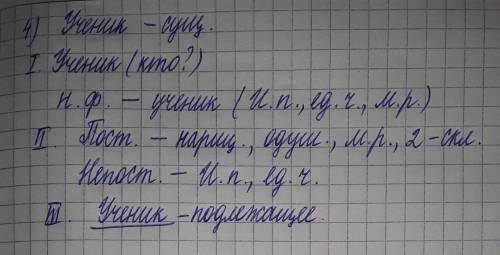 4) Ученик – сущ.
I. Ученик (кто?)
н.ф. – ученик (И.п., ед.ч., м.р.)
II. Пост. – нариц., одуш., м.р., 2-скл.
Непост. – И.п., ед.ч.
III. Ученик – подлежащее.